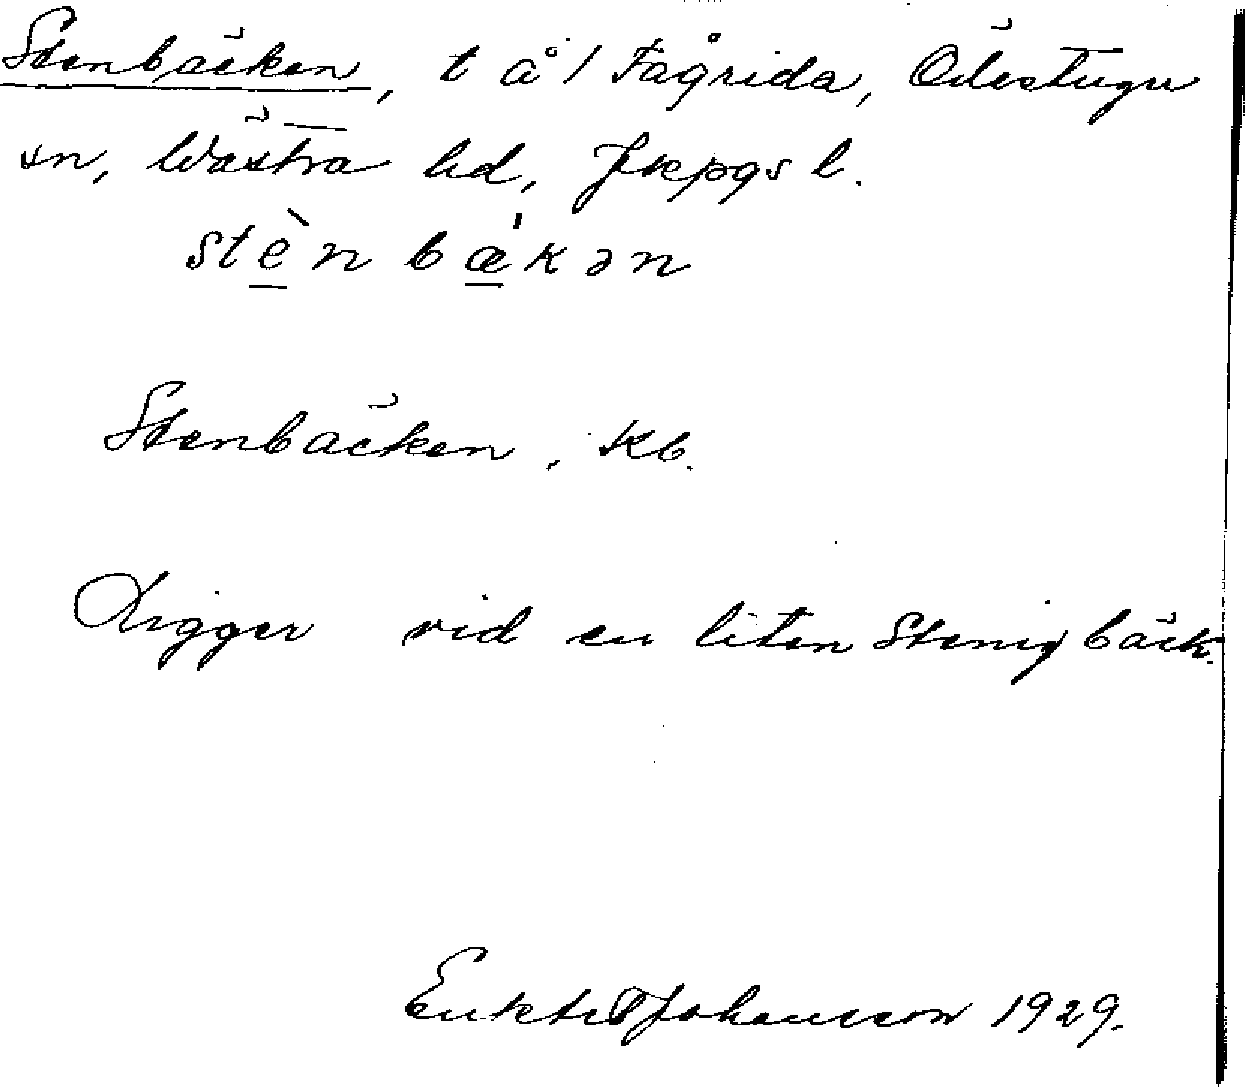 Stenbäcken, t å / Fågrida, Ödestugu
sn, Västra hd, Jkpgs l.
stèn bæ̀kən
Stenbäcken. Kb.
Ligger vid en liten stenig bäck.
Johansson 1929.